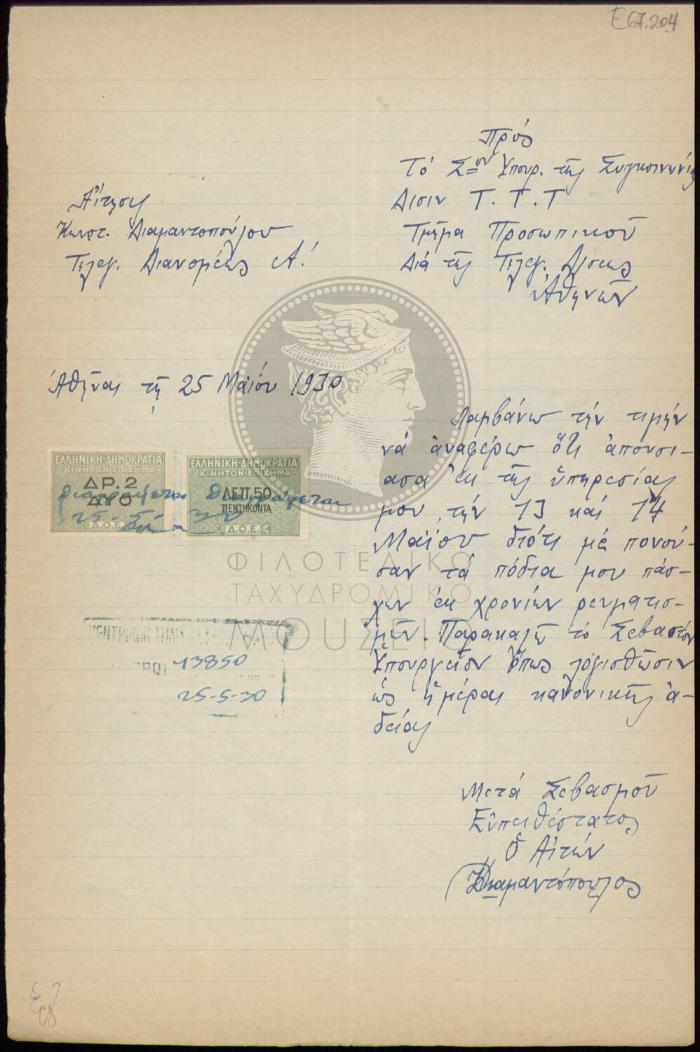 E67.204
Πρός
Τό Σὸν Ὑπουρ. τῆς Συγκοινωνίας
Δ/σιν Τ. Τ. Τ
Τμῆμα Προσωπικοῦ
Διά τῆς Τηλεγ. Δ/σεως
Ἀθηνῶν
Αἴτησις
Κωνστ. Διαμαντοπούλου
Τηλεγ. Διανομέως Α!
Ἀθῆναι τῇ 25 Μαΐου 1930
Λαμβάνω τήν τιμήν
νά ἀναφέρω ὅτι ἀπουσί-
ασα ἐκ τῆς ὑπηρεσίας
μου τήν 13 καί 14
Μαΐου διότι μέ πονοῦ-
σαν τά πόδια μου πάσ-
χων ἐκ χρονίων ρευματισ-
μῶν. Παρακαλῶ τό Σεβαστόν
Ὑπουργεῖον ὅπως λογισθῶσιν
ὡς ἡμέραι κανονικῆς ἀ-
δείας
Μετά Σεβασμοῦ
Εὐπειθέστατος
Ὁ Αἰτῶν
ΚΔιαμαντόπουλος
ΕΛΛΗΝΙΚΗ·ΔΗΜΟΚΡΑΤΙΑ
ΚΙΝΗΤΟΝ ΕΠΙΣΗΜΑ
ΔΡ.2
ΔΥΟ
Δ.Ο.Ε.
ΕΛΛΗΝΙΚΗ·ΔΗΜΟΚΡΑΤΙΑ
ΚΙΝΗΤΟΝ ΕΠΙΣΗΜΑ
ΛΕΠ.50
ΠΕΝΤΗΚΟΝΤΑ
Δ.Ο.Ε.
διαγράφεται διαγράφεται
13850
25-5-30
ΦΙΛΟΤΕΛΙΚΟ
ΤΑΧΥΔΡΟΜΙΚΟ
ΜΟΥΣΕΙΟ